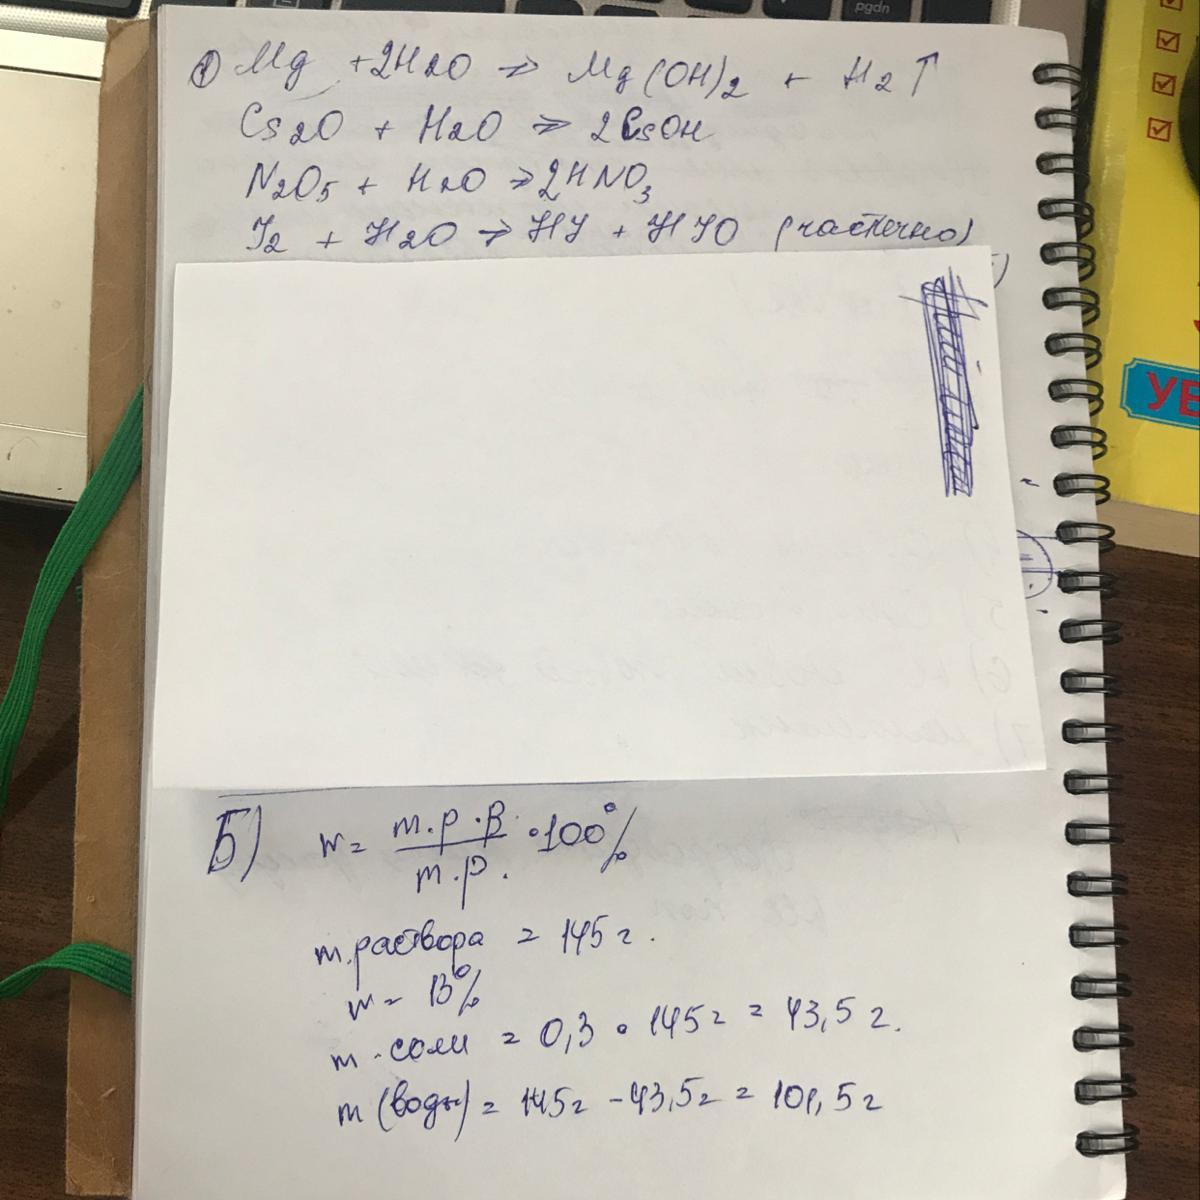 pgdn
① Mg + 2H2O → Mg(OH)2 + H2↑
Cs2O + H2O → 2CsOH
N2O5 + H2O → 2HNO3
J2 + H2O → HJ + HJO (частечно)
УВ
Б) w = m.р.В / m.р. • 100%
m.раствора = 145 г.
w = 13%
m.соли = 0,3 • 145 г = 43,5 г.
m (воды) = 145 г - 43,5 г = 101,5 г